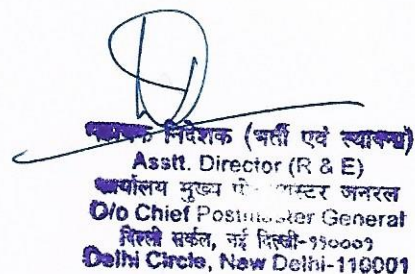 निदेशक (भर्ती एवं स्थापना)
Asstt. Director (R & E)
कार्यालय मुख्य जनरल
O/o Chief Postmaster General
दिल्ली सर्कल, नई दिल्ली-११०००१
Delhi Circle, New Delhi-110001